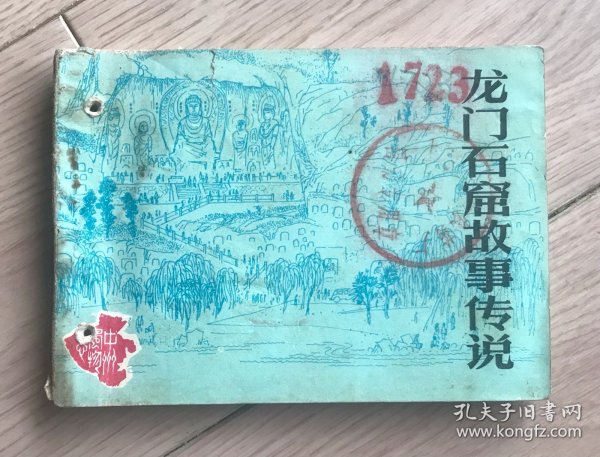 1723
龙门石窟故事传说
中州
风物
孔夫子旧书网
www.kongfz.com